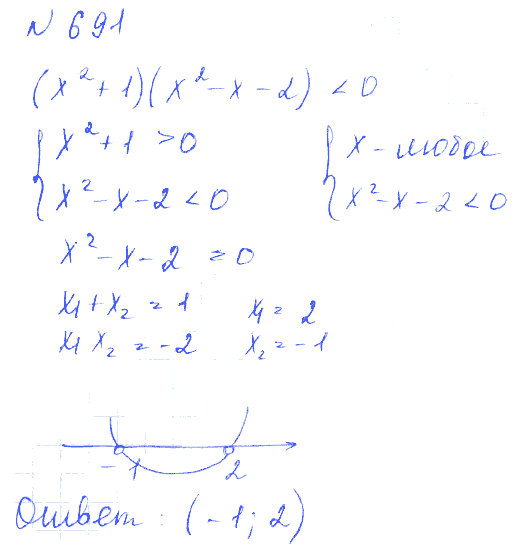 N 691
(x² + 1)(x² - x - 2) < 0
{ x² + 1 > 0
{ x² - x - 2 < 0
{ x - любое
{ x² - x - 2 < 0
x² - x - 2 = 0
x₁ + x₂ = 1
x₁ x₂ = -2
x₁ = 2
x₂ = -1
-1 2
Ответ: (-1; 2)